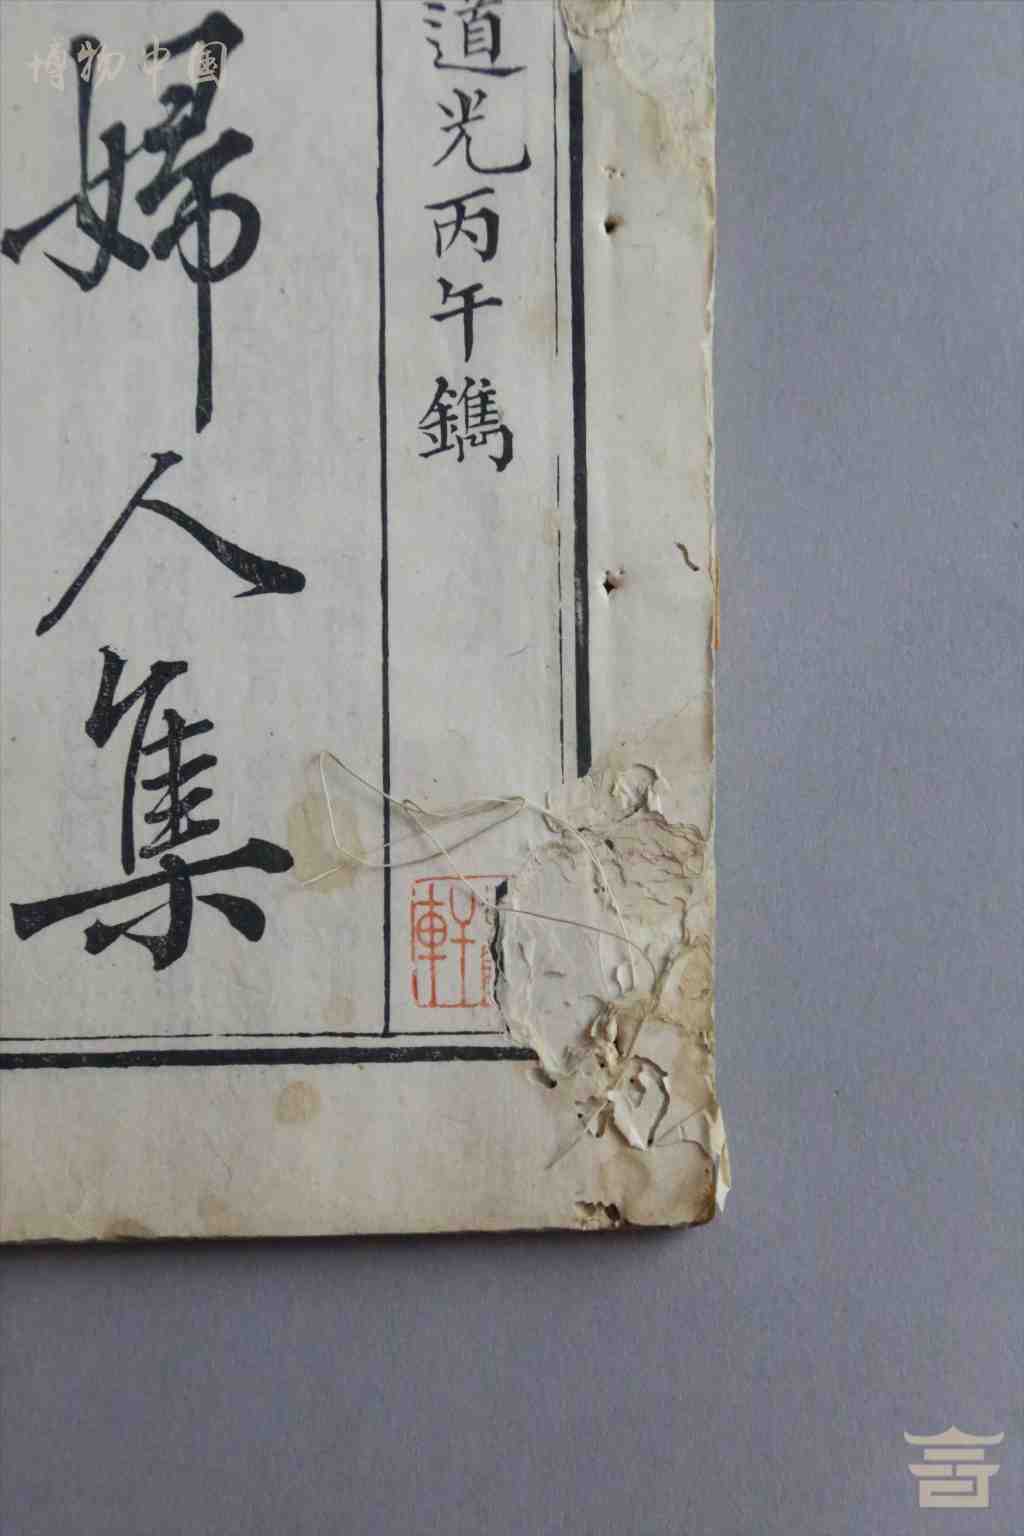 博物中国
道光丙午鐫
婦人集
軒